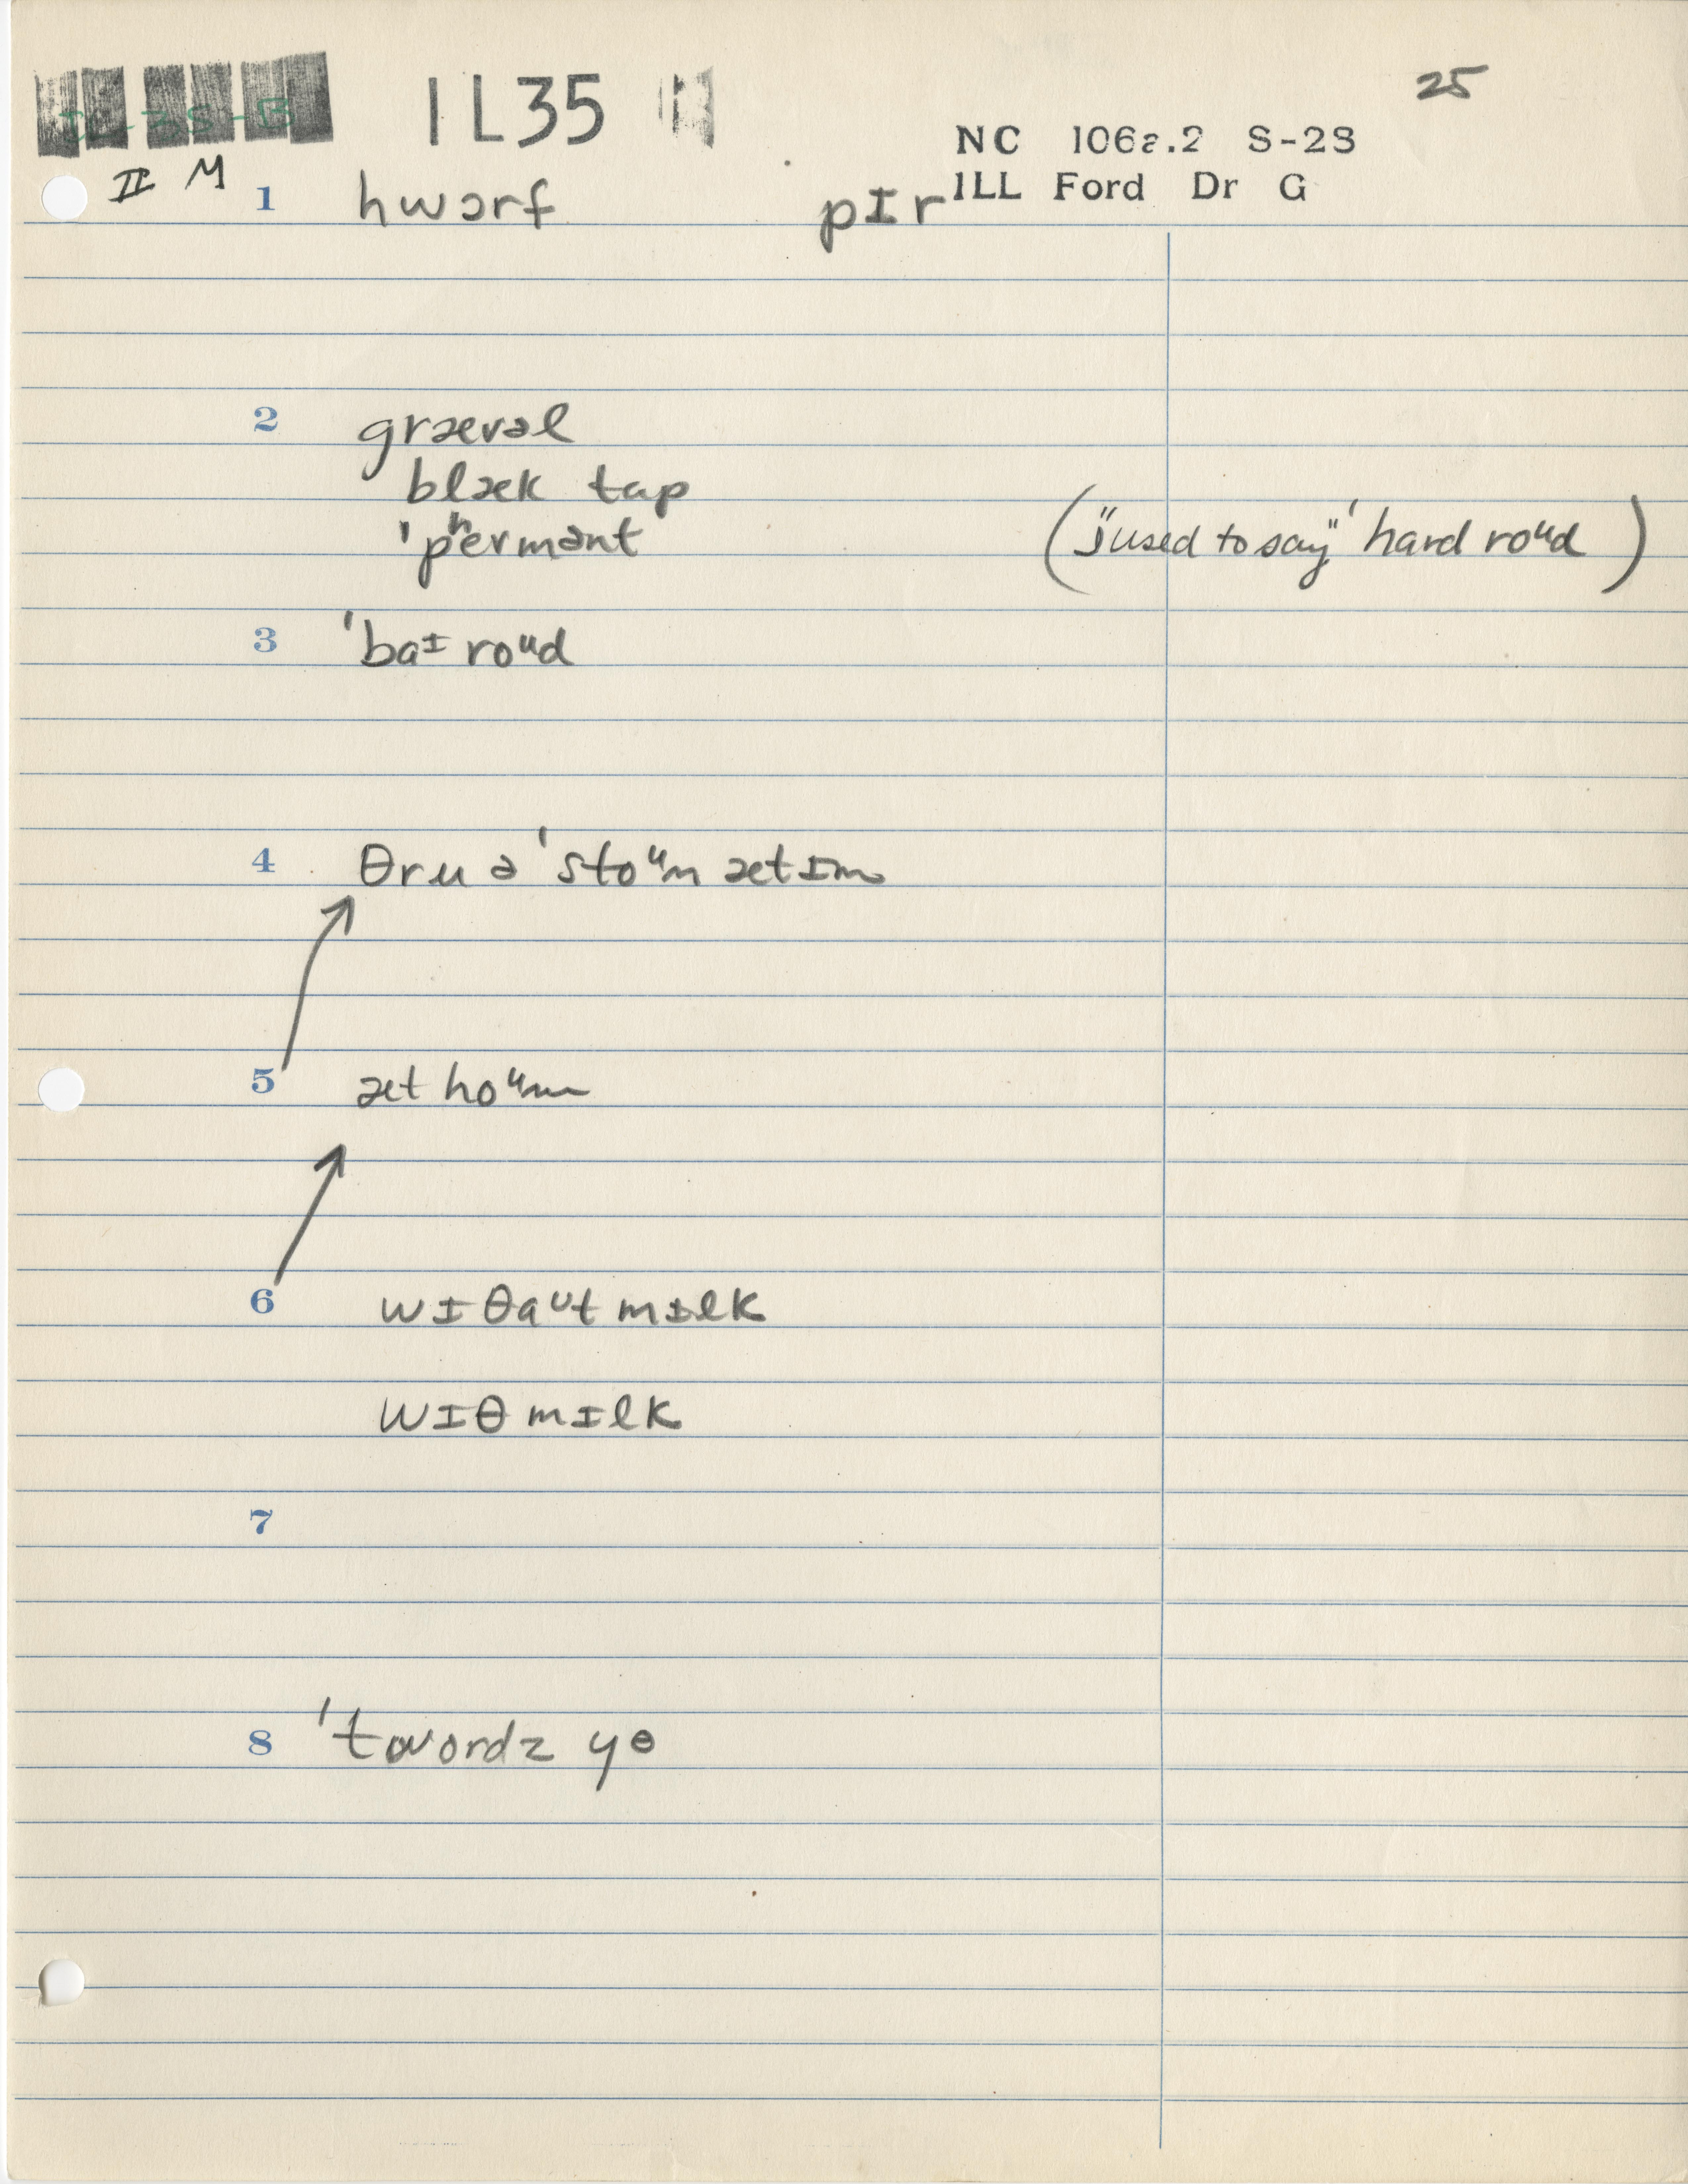 IL-35-B 1L35 25
NC 106a.2 S-2S
ILL Ford Dr G
II M
1 hwɔrf pɪr
2 grævəl
blæk tap
'pʰɛrmənt ("used to say" 'hard roᵘd)
3 'baᶦ roᵘd
4 θru ə 'stoᵘn æt ɪm
5 æt hoᵘm
6 wɪθaᵘt mɪlk
wɪθ mɪlk
7
8 'towordz yə